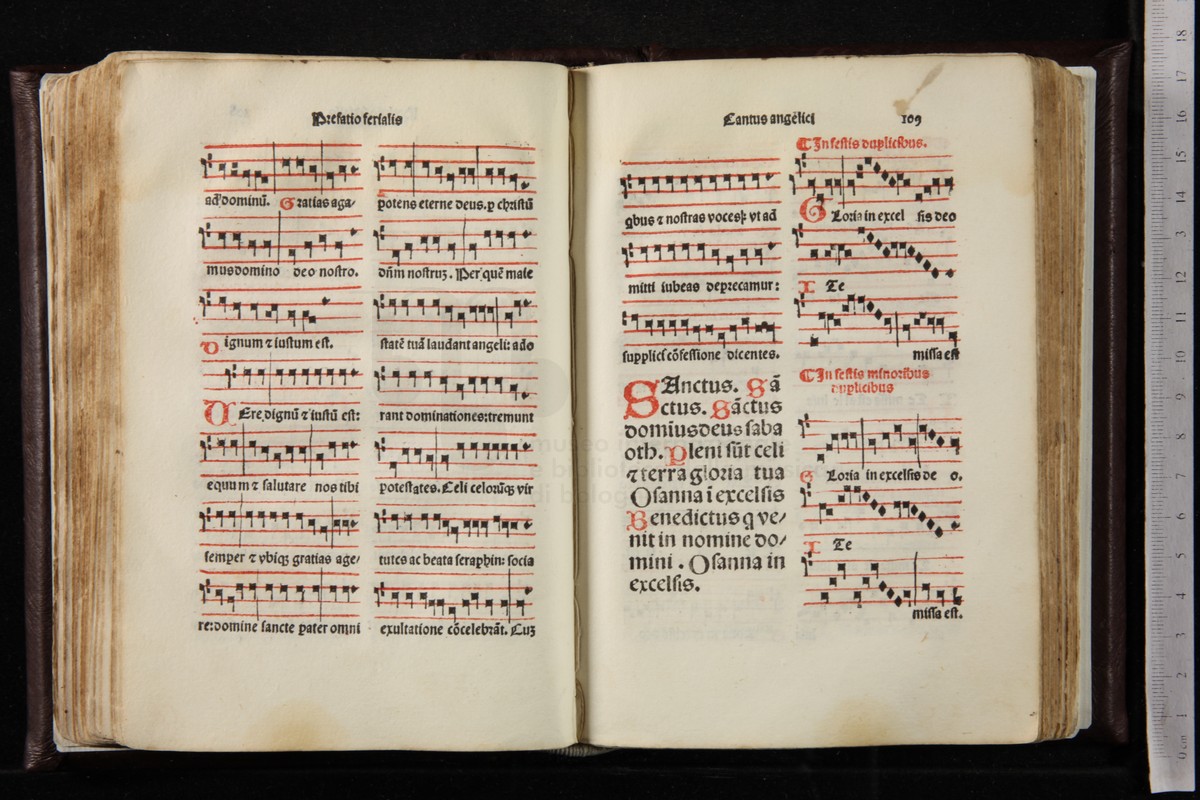 Prefatio ferialis
ad dominū. Gratias aga/
mus domino deo nostro.
Dignum ⁊ iustum est.
VEre dignū ⁊ iustū est:
equum ⁊ salutare nos tibi
semper ⁊ vbiqꝫ gratias age/
re: domine sancte pater omni
potens eterne deus. ꝑ christū
dn̄m nostruꝫ. Per quē maie
statē tuā laudant angeli: ado
rant dominationes: tremunt
potestates. Celi celorūqꝫ vir
tutes ac beata seraphin: socia
exultatione cōcelebrāt. Cuꝫ
Cantus angēlici 109
qbus ⁊ nostras voces: vt ad
mitti iubeas deprecamur:
supplici cōfessione dicentes.
SAnctus. Sā
ctus. Sāctus
domius deus saba
oth. Pleni sūt celi
⁊ terra gloria tua
Osanna ī excelsis
Benedictus q ve/
nit in nomine do/
mini. Osanna in
excelsis.
¶ In festis duplicibus.
GLoria in excel sis deo
ITe
missa est
¶ In festis minoribus
duplicibus
GLoria in excelsis de o.
ITe
missa est.
museo
bibliot
di bolog
18
17
16
15
14
13
12
11
10
9
8
7
6
5
4
3
2
1
0 cm